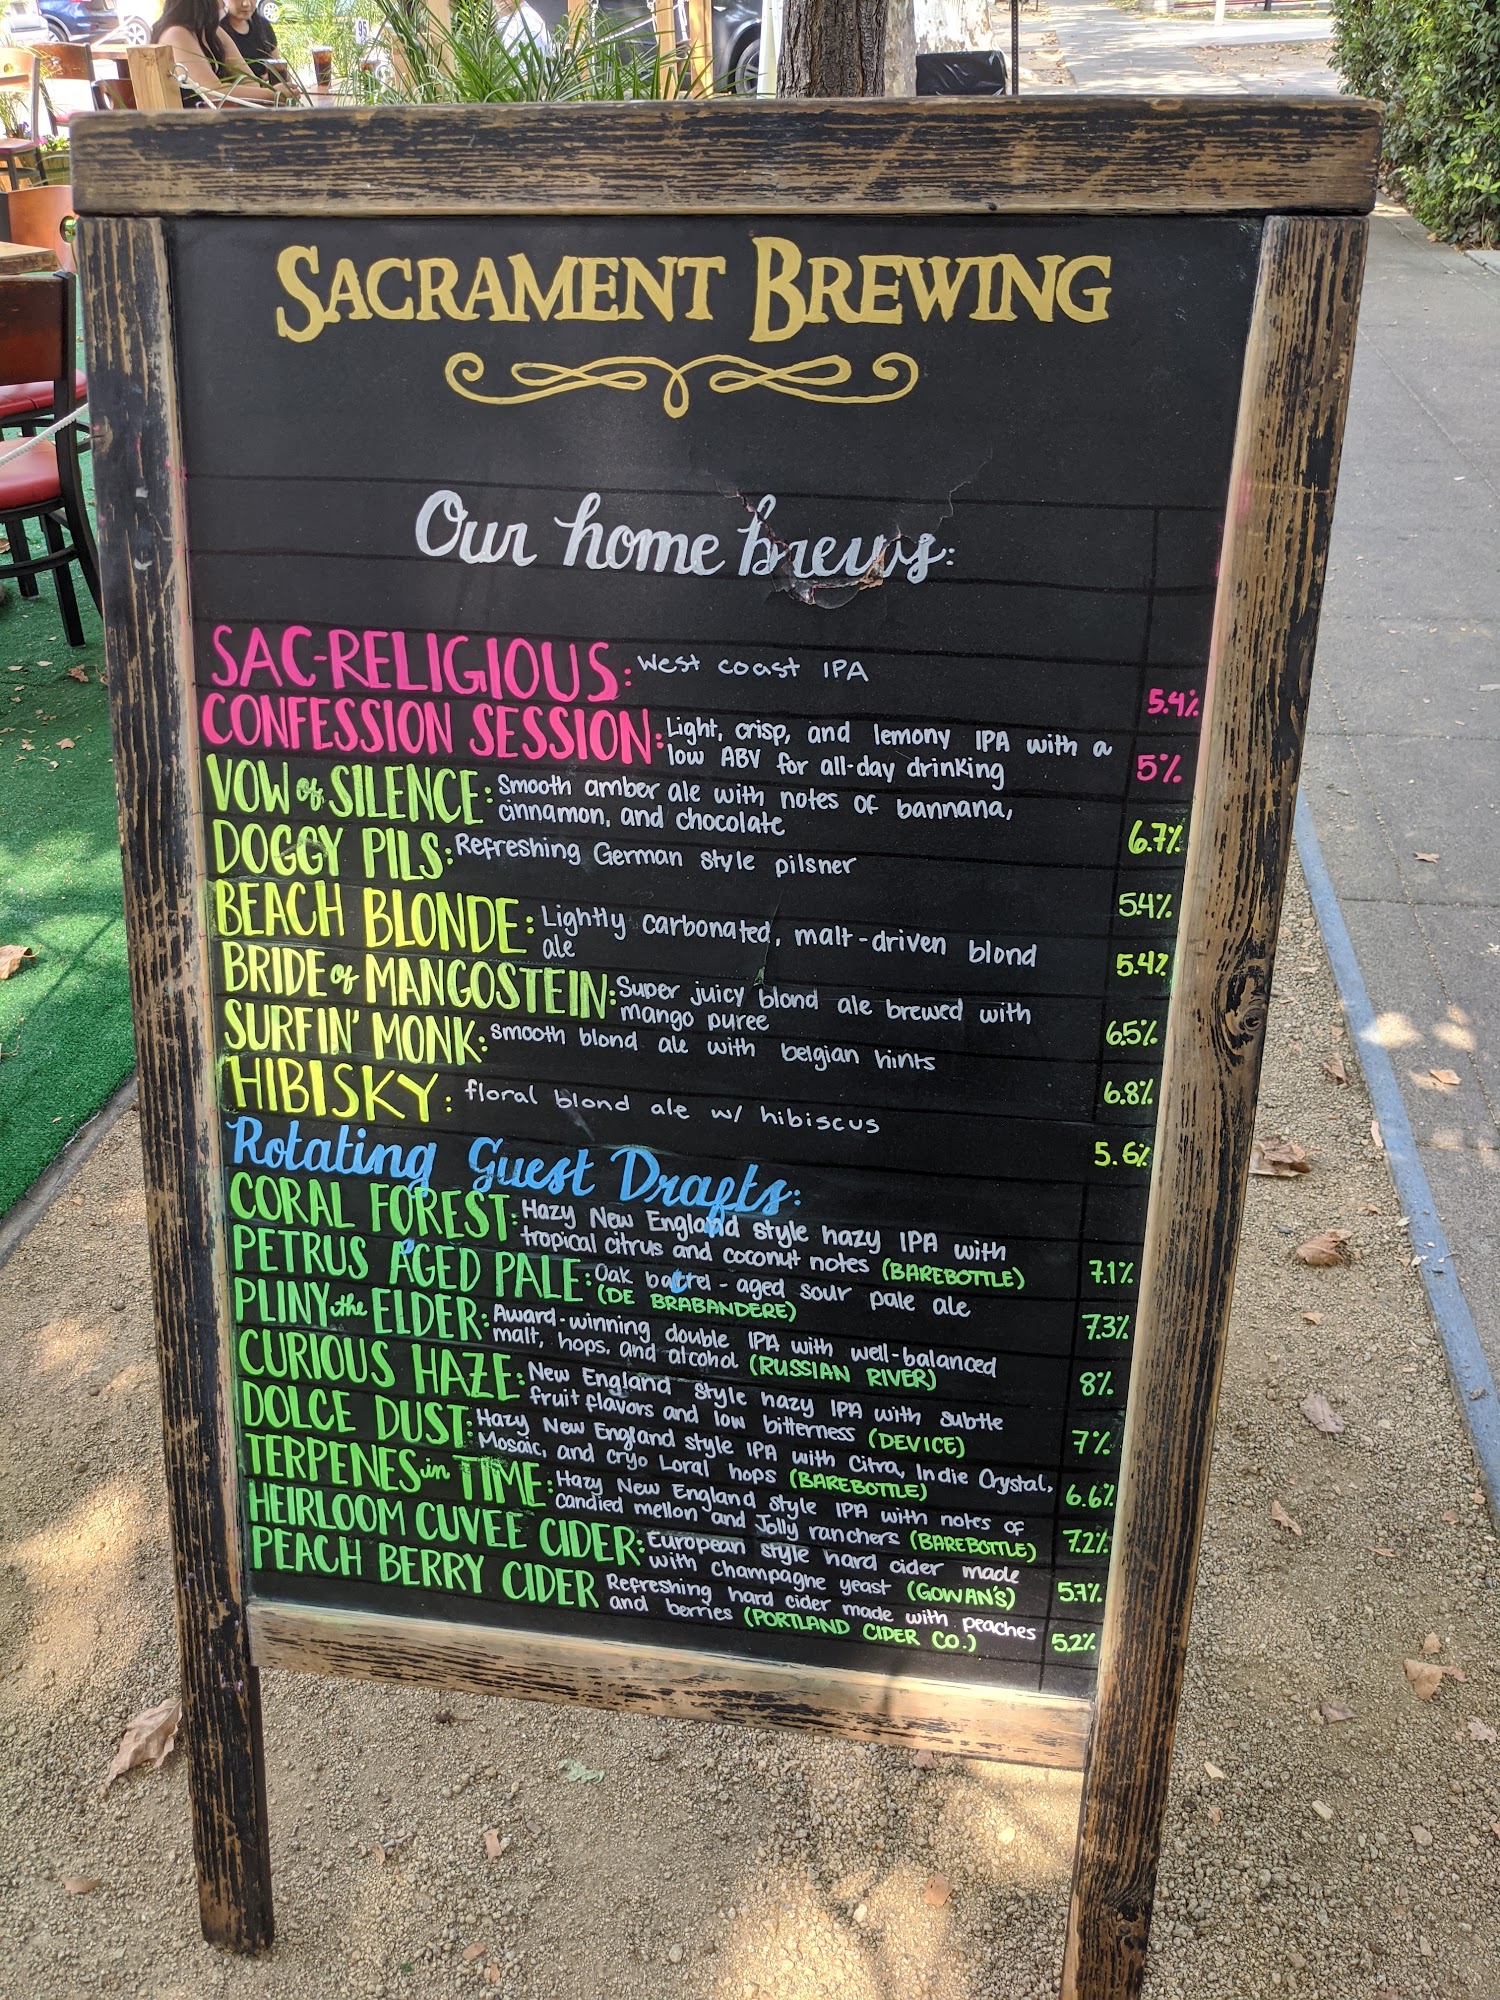 SACRAMENT BREWING
Our home brews:
SAC-RELIGIOUS: West coast IPA 5.4%
CONFESSION SESSION: Light, crisp, and lemony IPA with a
low ABV for all-day drinking 5%
VOW of SILENCE: Smooth amber ale with notes of bannana,
cinnamon, and chocolate 6.7%
DOGGY PILS: Refreshing German style pilsner 5.4%
BEACH BLONDE: Lightly carbonated, malt-driven blond
ale 5.4%
BRIDE of MANGOSTEIN: Super juicy blond ale brewed with
mango puree 6.5%
SURFIN' MONK: smooth blond ale with belgian hints 6.8%
HIBISKY: floral blond ale w/ hibiscus 5.6%
Rotating Guest Drafts:
CORAL FOREST: Hazy New England style hazy IPA with
tropical citrus and coconut notes (BAREBOTTLE) 7.1%
PETRUS AGED PALE: Oak barrel-aged sour pale ale
(DE BRABANDERE) 7.3%
PLINY the ELDER: Award-winning double IPA with well-balanced
malt, hops, and alcohol (RUSSIAN RIVER) 8%
CURIOUS HAZE: New England style hazy IPA with subtle
fruit flavors and low bitterness (DEVICE) 7%
DOLCE DUST: Hazy New England style IPA with Citra, Indie Crystal,
Mosaic, and cryo Loral hops (BAREBOTTLE) 6.6%
TERPENES in TIME: Hazy New England style IPA with notes of
candied mellon and Jolly ranchers (BAREBOTTLE) 7.2%
HEIRLOOM CUVEE CIDER: European style hard cider made
with champagne yeast (GOWAN'S) 5.7%
PEACH BERRY CIDER Refreshing hard cider made with peaches
and berries (PORTLAND CIDER CO.) 5.2%